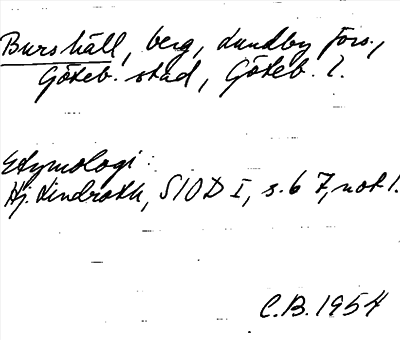 Burshäll, berg, Lundby förs.,
Göteb. stad, Göteb. l.
Etymologi:
Hj. Lindroth, SIOD I, s. 67, not 1.
C.B. 1954